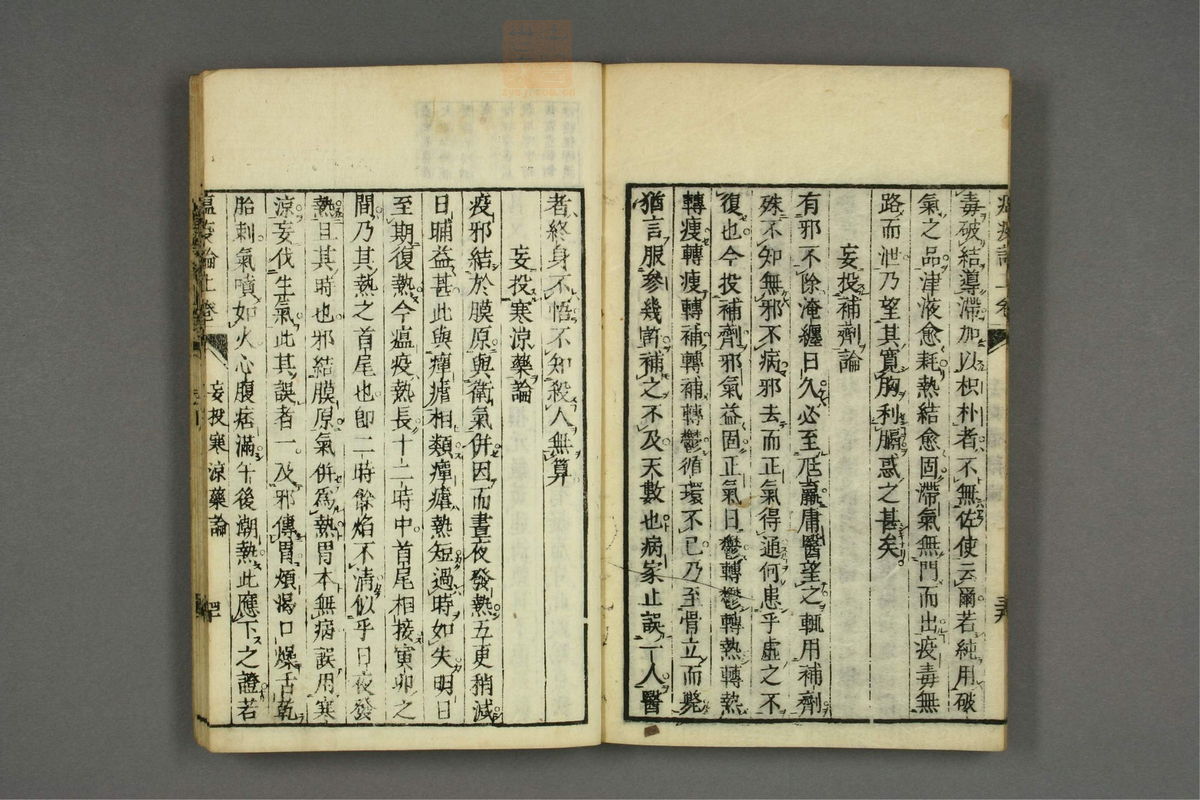 毒破結導滯加以枳朴者不無佐使云爾若純用破
氣之品津液愈耗熱結愈固滯氣無門而出疫毒無
路而泄乃望其寬胸利膈惑之甚矣
妄投補劑論
有邪不除淹纏日久必至尫羸庸醫望之輒用補劑
殊不知無邪不病邪去而正氣得通何患乎虛之不
復也今投補劑邪氣益固正氣日鬱轉鬱轉熱轉熱
轉瘦轉瘦轉補轉補轉鬱循環不已乃至骨立而斃
猶言服參幾許補之不及天數也病家止誤一人醫
者終身不悟不知殺人無算
妄投寒涼藥論
疫邪結於膜原與衛氣併因而晝夜發熱五更稍減
日晡益甚此與癉瘧相類癉瘧熱短過時如失明日
至期復熱今瘟疫熱長十二時中首尾相接寅卯之
間乃其熱之首尾也即二時餘焰不清似乎日夜發
熱且其時也邪結膜原氣併為熱胃本無病誤用寒
涼妄伐生氣此其誤者一及邪傳胃煩渴口燥舌乾
胎刺氣噴如火心腹痞滿午後潮熱此應下之證若
瘟疫論上卷
妄投寒涼藥論